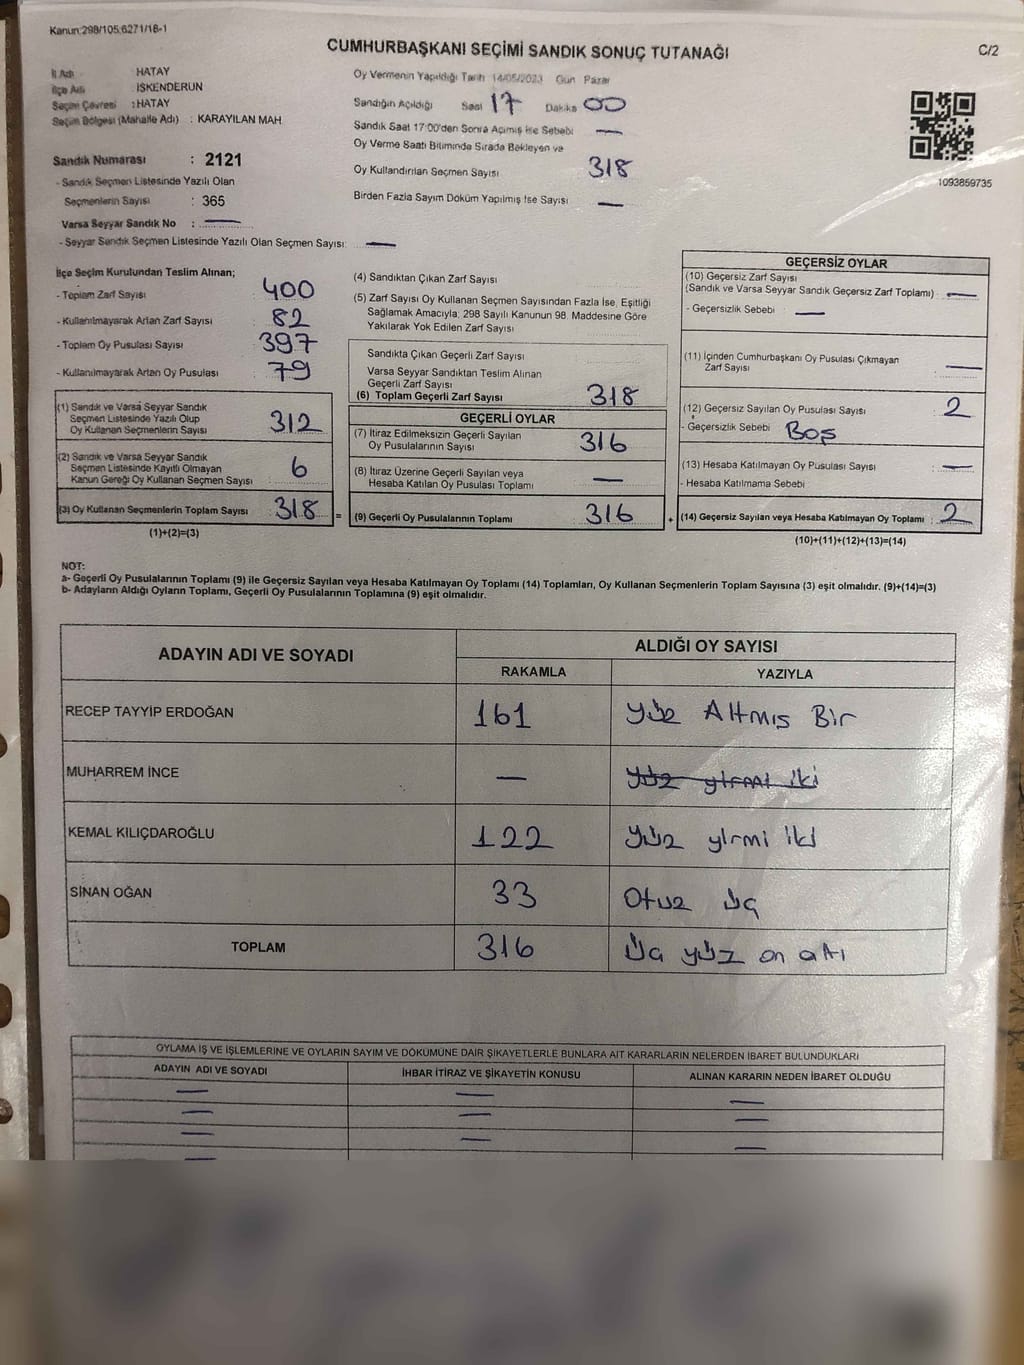 Kanun:298/105;6271/18-1
CUMHURBAŞKANI SEÇİMİ SANDIK SONUÇ TUTANAĞI
C/2
İl Adı : HATAY
İlçe Adı : İSKENDERUN
Seçim Çevresi : HATAY
Seçim Bölgesi (Mahalle Adı) : KARAYILAN MAH
Sandık Numarası : 2121
- Sandık Seçmen Listesinde Yazılı Olan
Seçmenlerin Sayısı : 365
Varsa Seyyar Sandık No : —
- Seyyar Sandık Seçmen Listesinde Yazılı Olan Seçmen Sayısı: —
Oy Vermenin Yapıldığı Tarih 14/05/2023 Gün Pazar
Sandığın Açıldığı Saat 17 Dakika 00
Sandık Saat 17:00'den Sonra Açılmış İse Sebebi —
Oy Verme Saati Bitiminde Sırada Bekleyen ve
Oy Kullandırılan Seçmen Sayısı 318
Birden Fazla Sayım Döküm Yapılmış İse Sayısı —
1093859735
İlçe Seçim Kurulundan Teslim Alınan;
- Toplam Zarf Sayısı 400
- Kullanılmayarak Artan Zarf Sayısı 82
- Toplam Oy Pusulası Sayısı 397
- Kullanılmayarak Artan Oy Pusulası 79
(1) Sandık ve Varsa Seyyar Sandık
Seçmen Listesinde Yazılı Olup
Oy Kullanan Seçmenlerin Sayısı 312
(2) Sandık ve Varsa Seyyar Sandık
Seçmen Listesinde Kayıtlı Olmayan
Kanun Gereği Oy Kullanan Seçmen Sayısı 6
(3) Oy Kullanan Seçmenlerin Toplam Sayısı 318 =
(1)+(2)=(3)
(4) Sandıktan Çıkan Zarf Sayısı
(5) Zarf Sayısı Oy Kullanan Seçmen Sayısından Fazla İse, Eşitliği
Sağlamak Amacıyla; 298 Sayılı Kanunun 98. Maddesine Göre
Yakılarak Yok Edilen Zarf Sayısı
Sandıkta Çıkan Geçerli Zarf Sayısı
Varsa Seyyar Sandıktan Teslim Alınan
Geçerli Zarf Sayısı
(6) Toplam Geçerli Zarf Sayısı 318
GEÇERLİ OYLAR
(7) İtiraz Edilmeksizin Geçerli Sayılan
Oy Pusulalarının Sayısı 316
(8) İtiraz Üzerine Geçerli Sayılan veya
Hesaba Katılan Oy Pusulası Toplamı —
(9) Geçerli Oy Pusulalarının Toplamı 316 +
GEÇERSİZ OYLAR
(10) Geçersiz Zarf Sayısı
(Sandık ve Varsa Seyyar Sandık Geçersiz Zarf Toplamı) —
- Geçersizlik Sebebi : —
(11) İçinden Cumhurbaşkanı Oy Pusulası Çıkmayan
Zarf Sayısı —
(12) Geçersiz Sayılan Oy Pusulası Sayısı 2
- Geçersizlik Sebebi Boş
(13) Hesaba Katılmayan Oy Pusulası Sayısı —
- Hesaba Katılmama Sebebi
(14) Geçersiz Sayılan veya Hesaba Katılmayan Oy Toplamı : 2
(10)+(11)+(12)+(13)=(14)
NOT:
a- Geçerli Oy Pusulalarının Toplamı (9) ile Geçersiz Sayılan veya Hesaba Katılmayan Oy Toplamı (14) Toplamları, Oy Kullanan Seçmenlerin Toplam Sayısına (3) eşit olmalıdır. (9)+(14)=(3)
b- Adayların Aldığı Oyların Toplamı, Geçerli Oy Pusulalarının Toplamına (9) eşit olmalıdır.
ADAYIN ADI VE SOYADI
ALDIĞI OY SAYISI
RAKAMLA YAZIYLA
RECEP TAYYİP ERDOĞAN 161 Yüz Altmış Bir
MUHARREM İNCE — Yüz yirmi iki
KEMAL KILIÇDAROĞLU 122 Yüz yirmi iki
SİNAN OĞAN 33 Otuz üç
TOPLAM 316 Üç yüz on altı
OYLAMA İŞ VE İŞLEMLERİNE VE OYLARIN SAYIM VE DÖKÜMÜNE DAİR ŞİKAYETLERLE BUNLARA AİT KARARLARIN NELERDEN İBARET BULUNDUKLARI
ADAYIN ADI VE SOYADI İHBAR İTİRAZ VE ŞİKAYETİN KONUSU ALINAN KARARIN NEDEN İBARET OLDUĞU
— — —
— — —
— — —
—